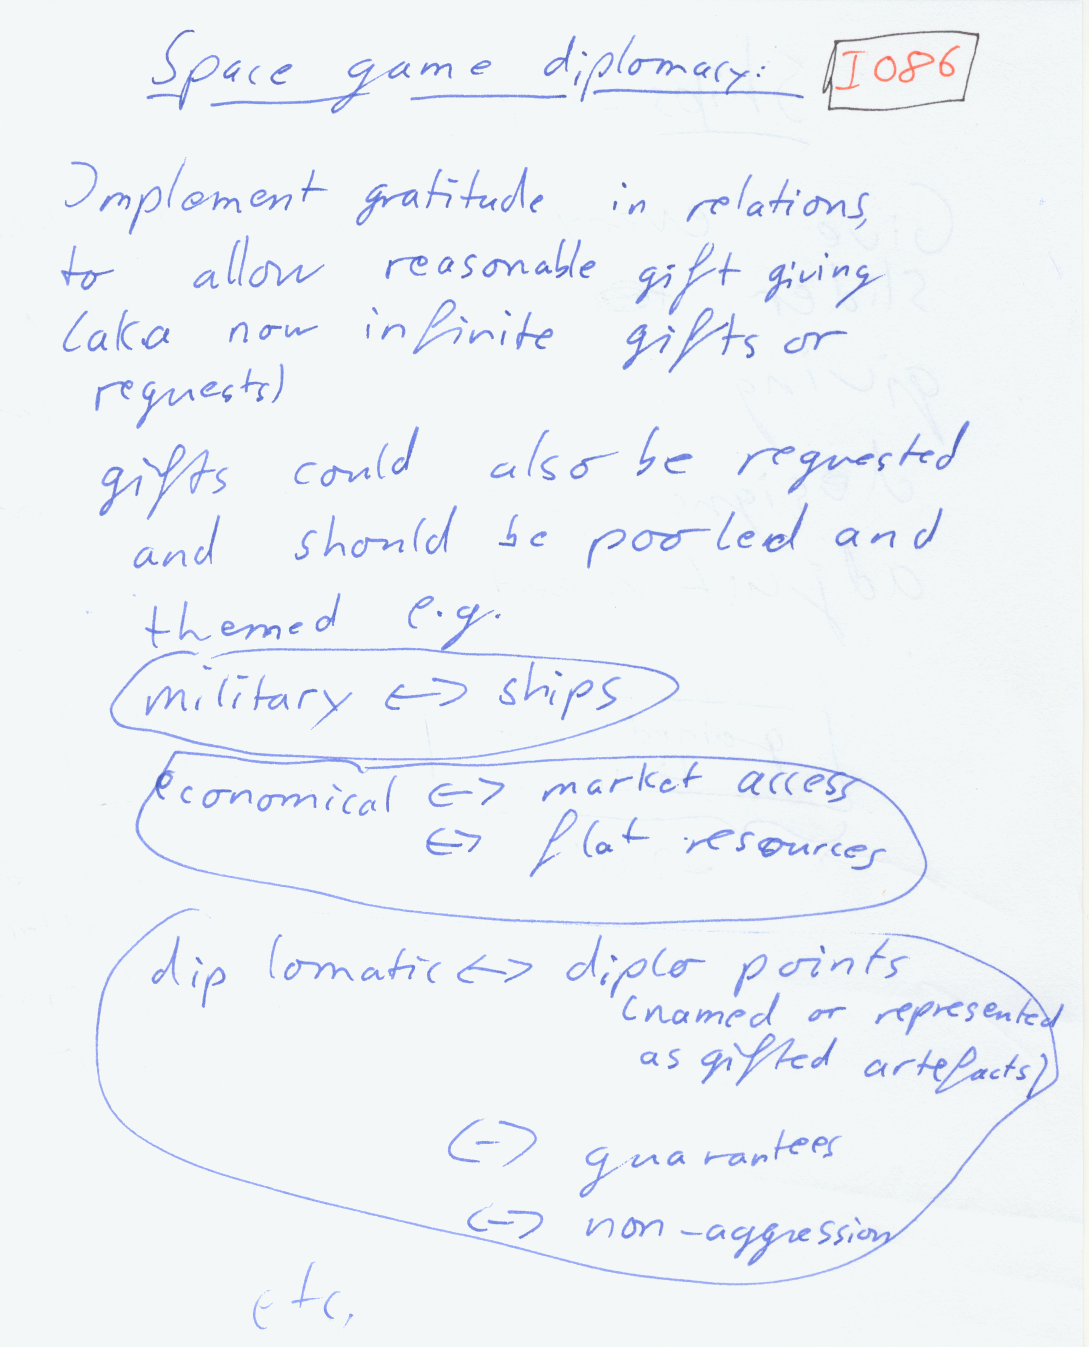 Space game diplomacy: I086
Implement gratitude in relations,
to allow reasonable gift giving
(aka now infinite gifts or
requests)
gifts could also be requested
and should be pooled and
themed e.g.
military <-> ships
economical <-> market access
<-> flat resources
diplomatic <-> diplo points
(named or represented
as gifted artefacts)
<-> guarantees
<-> non-aggression
etc.